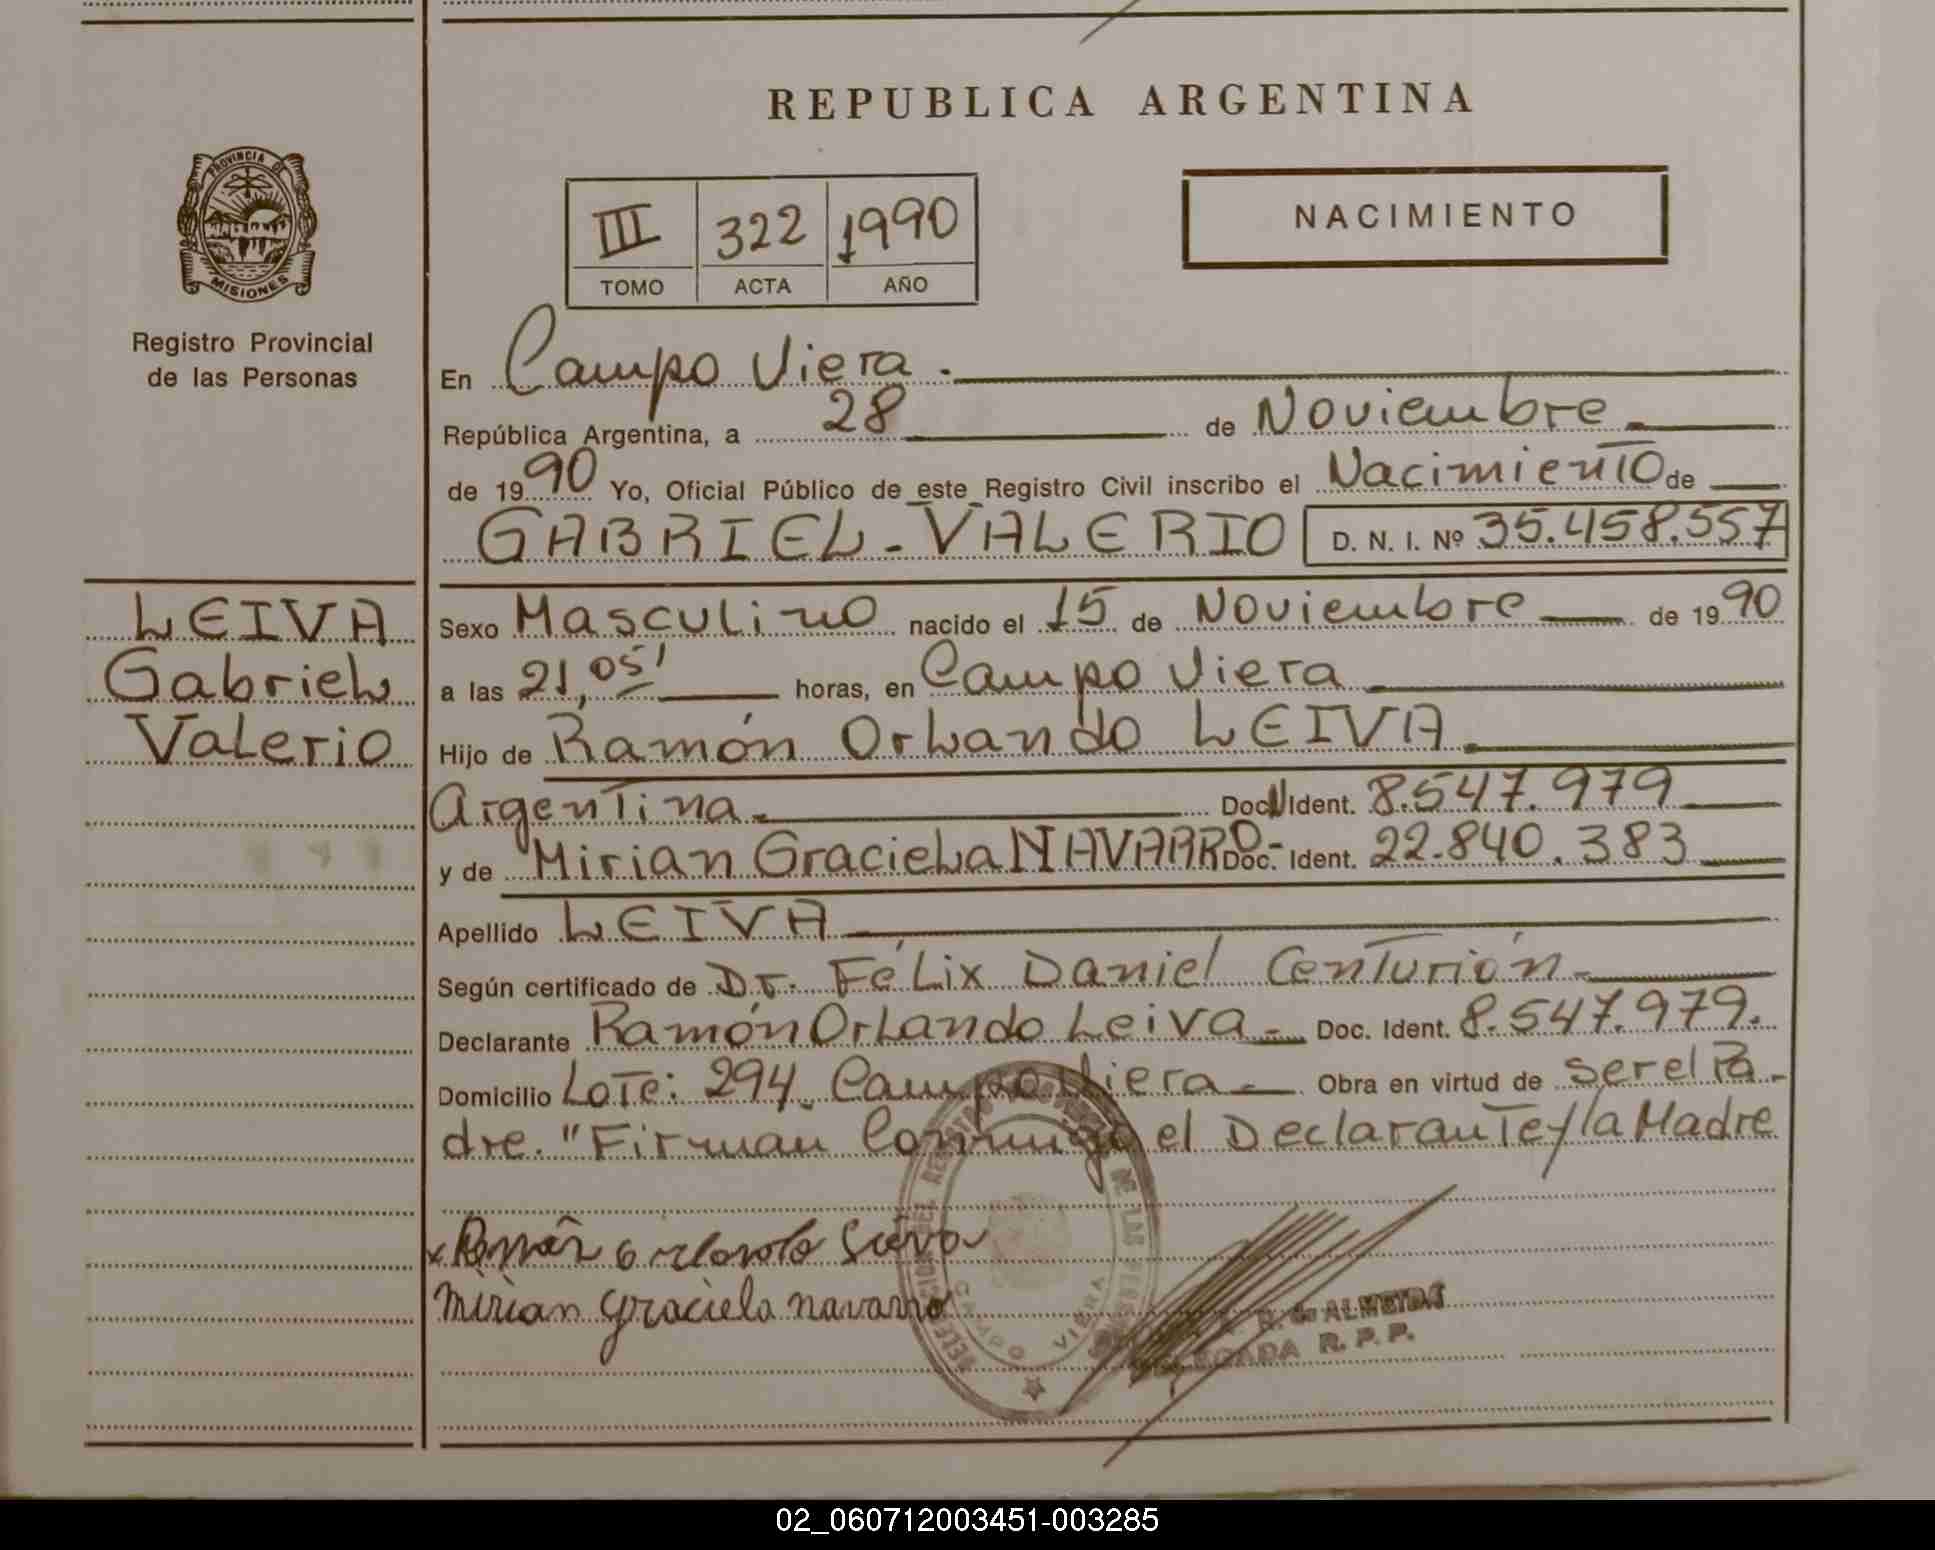 REPUBLICA ARGENTINA
PROVINCIA DE
MISIONES
Registro Provincial
de las Personas
III 322 1990
TOMO ACTA AÑO
NACIMIENTO
En Campo Viera.
República Argentina, a 28 de Noviembre
de 1990 Yo, Oficial Público de este Registro Civil inscribo el Nacimiento de
GABRIEL-VALERIO D. N. I. Nº 35.458.557
LEIVA
Gabriel
Valerio
Sexo Masculino nacido el 15 de Noviembre de 1990
a las 21,05' horas, en Campo Viera
Hijo de Ramón Orlando LEIVA
Argentina. Doc. Ident. 8.547.979
y de Mirian Graciela NAVARRO- Doc. Ident. 22.840.383
Apellido LEIVA
Según certificado de Dr. Félix Daniel Centurión-
Declarante Ramón Orlando Leiva- Doc. Ident. 8.547.979.
Domicilio Lote: 294. Campo Viera- Obra en virtud de ser el Pa-
dre. "Firman Conmigo el Declarante y la Madre
x Ramón Orlando Leiva
Mirian Graciela navarro
CAMPO VIERA
de ALMEIDA
DELEGADA R. P. P.
02_060712003451-003285